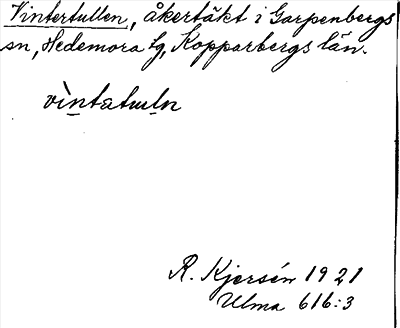 Vintertullen, åkertäkt i Garpenbergs
sn, Hedemora tg, Kopparbergs län.
vìntatuln
R. Kjersén 1921
Ulma 616:3